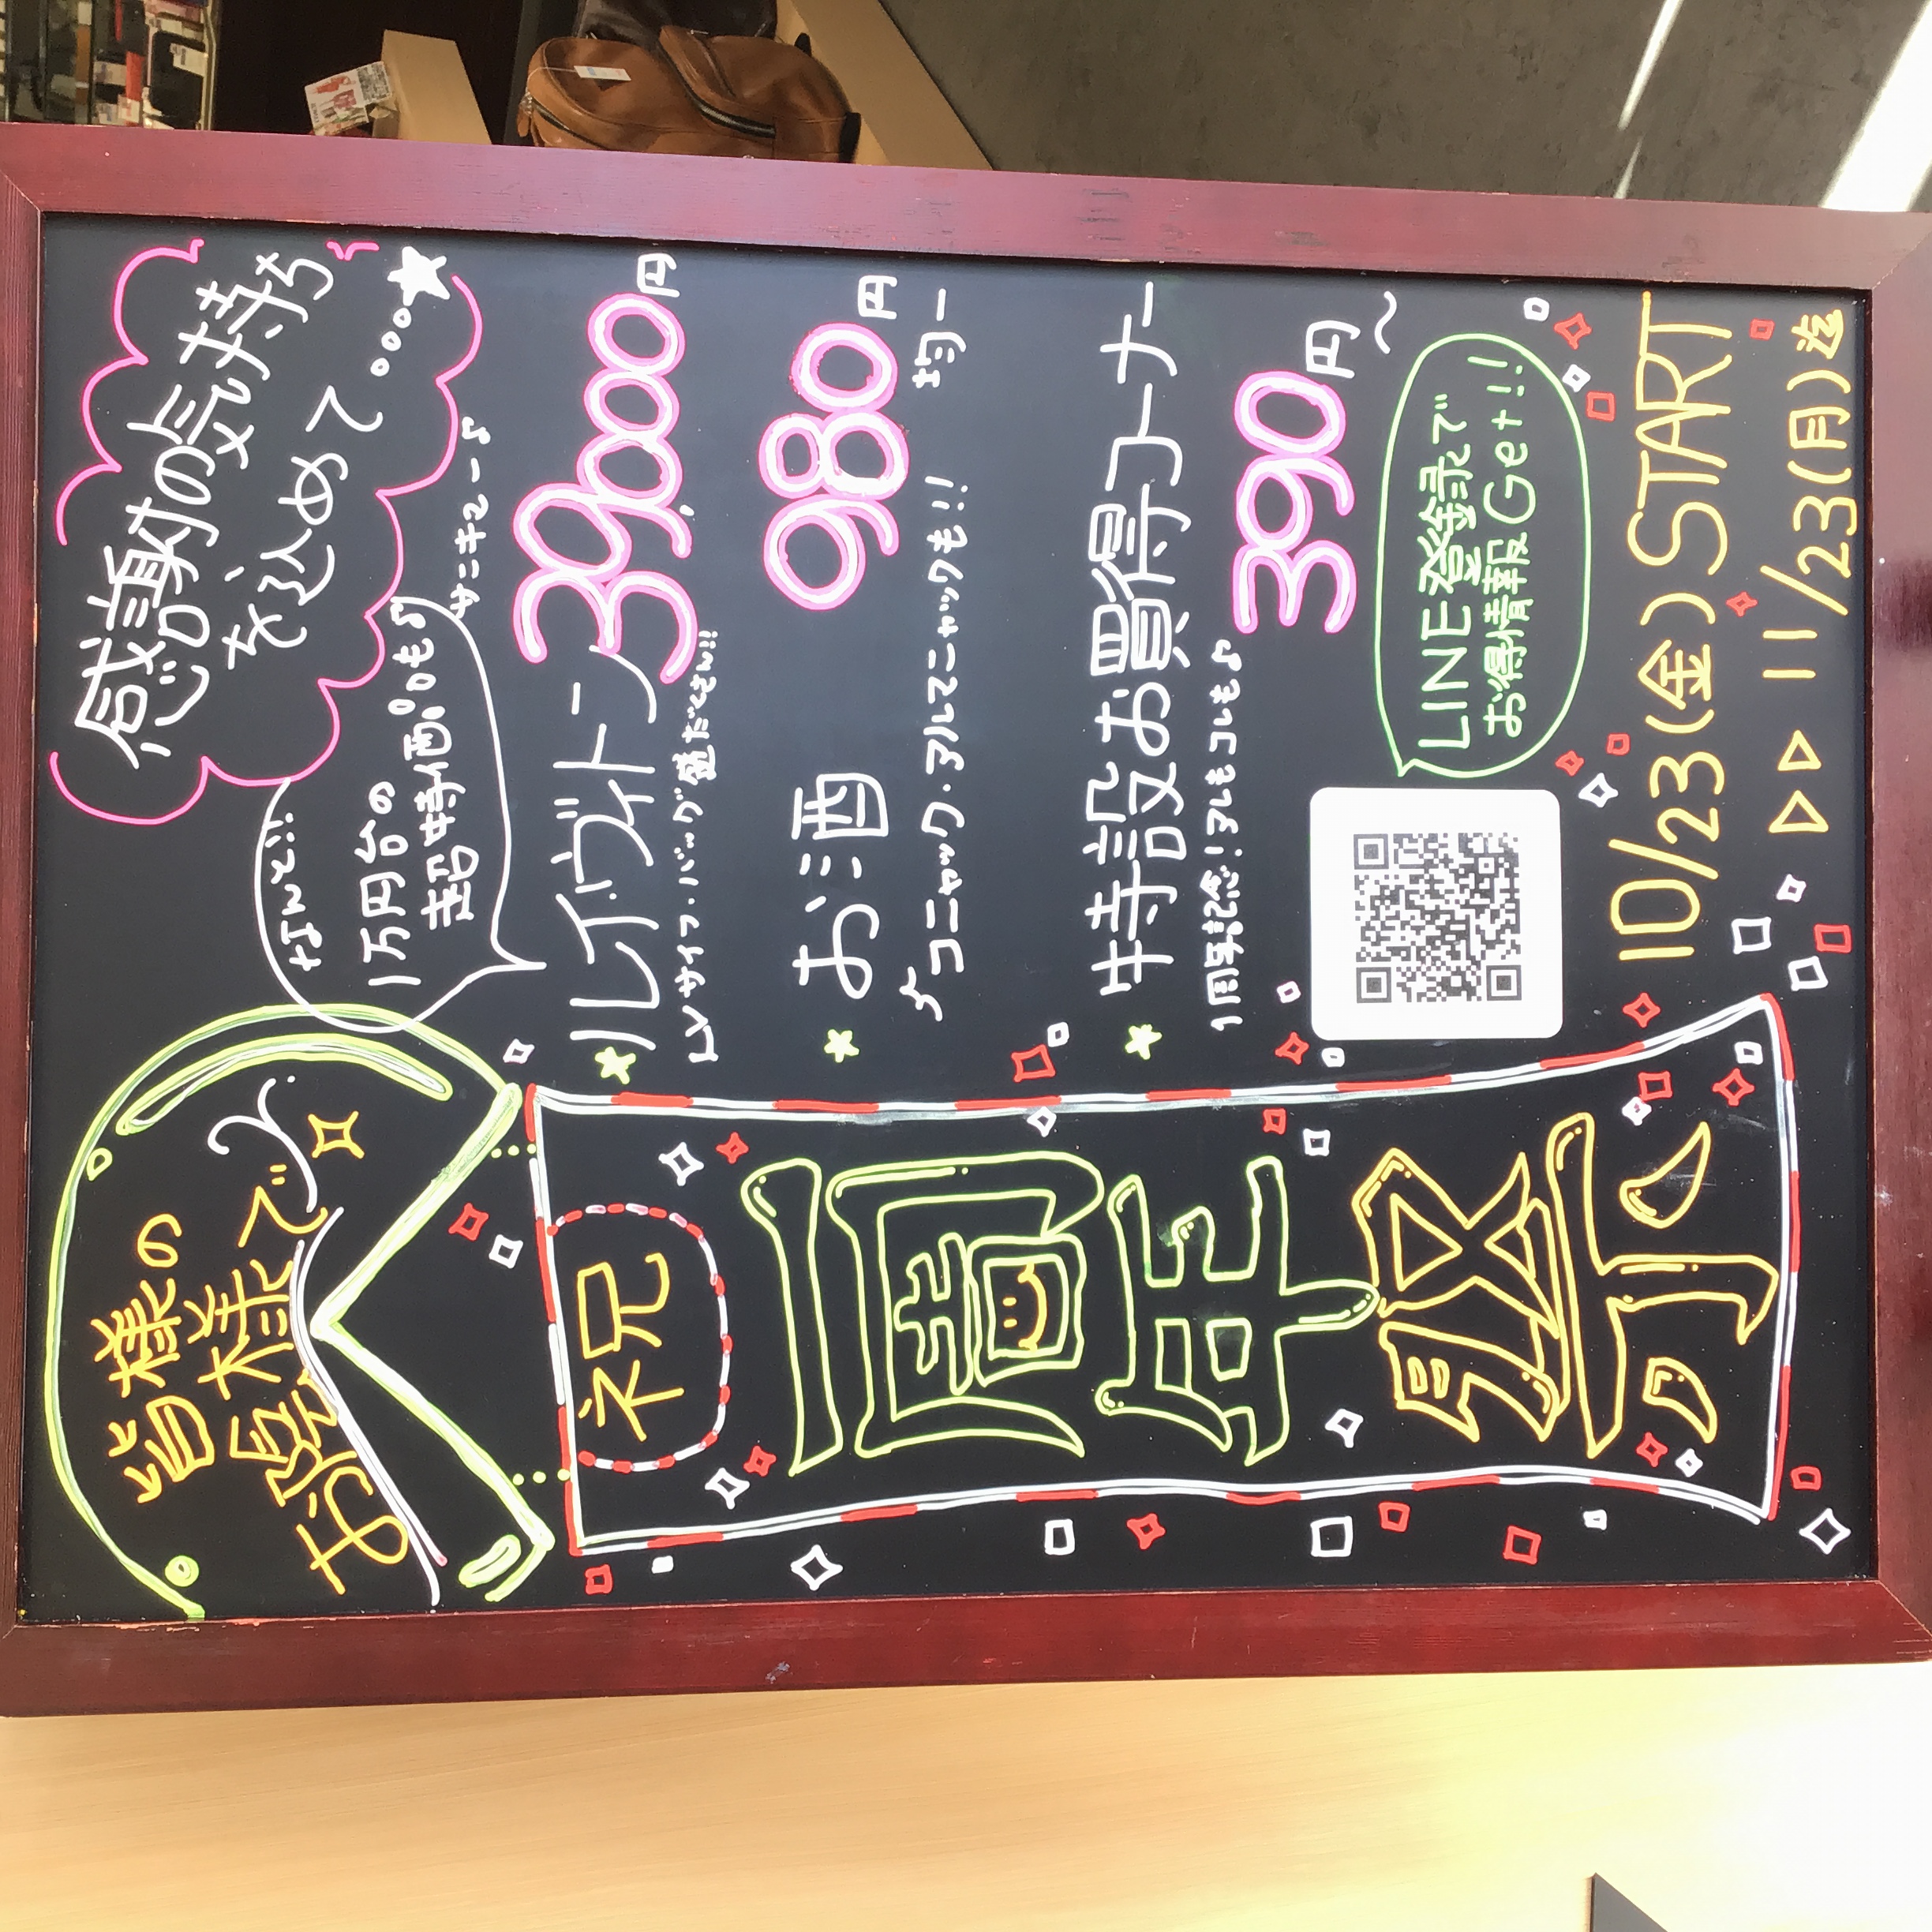 皆様の
お陰様で
祝
1周年祭
感謝の気持ち
を込めて...
なんと!!
1万円台の
超特価品も♪
サンキュー♪
ルイヴィトン 39,000円
LVサイフ・バッグ盛だくさん!!
お酒 980円
均一
コニャック・アルマニャックも!!
特設お買得コーナー
1周年記念!アレもコレも♪ 390円〜
LINE登録で
お得情報Get!!
10/23(金)START
▷▷ 11/23(月)迄